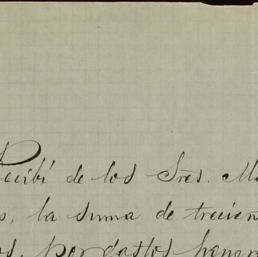 Recibí de los Sres. M
s, la suma de trecien
os, por gastos